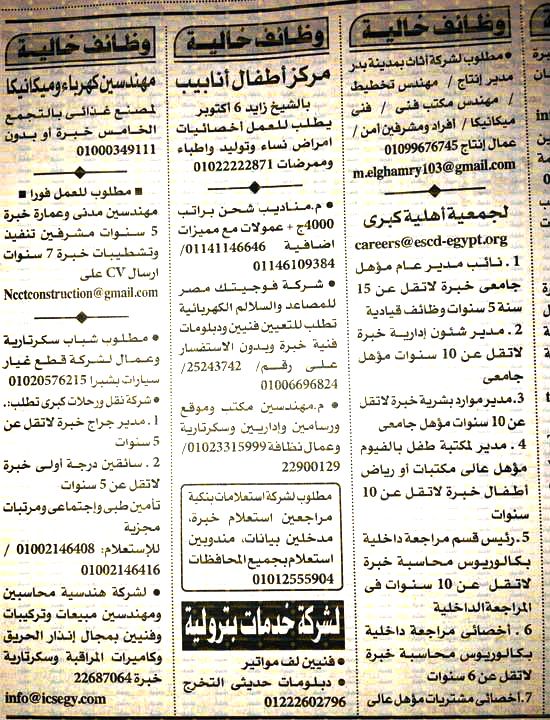 وظائف خالية
• مطلوب لشركة أثاث بمدينة بدر
مدير إنتاج / مهندس تخطيط
/ مهندس مكتب فنى / فنى
ميكانيكا / أفراد ومشرفين أمن /
عمال إنتاج 01099676745
m.elghamry103@gmail.com
لجمعية أهلية كبرى
careers@escd-egypt.org
1. نائب مدير عام مؤهل
جامعى خبرة لاتقل عن 15
سنة 5 سنوات وظائف قيادية
2. مدير شئون إدارية خبرة
لاتقل عن 10 سنوات مؤهل
جامعى
3.مدير موارد بشرية خبرة لاتقل
عن 10 سنوات مؤهل جامعى
4. مدير لمكتبة طفل بالفيوم
مؤهل عالى مكتبات أو رياض
أطفال خبرة لاتقل عن 10
سنوات
5.رئيس قسم مراجعة داخلية
بكالوريوس محاسبة خبرة
لاتقل عن 10 سنوات فى
المراجعة الداخلية
6. أخصائى مراجعة داخلية
بكالوريوس محاسبة خبرة
لاتقل عن 6 سنوات
7.أخصائى مشتريات مؤهل عالى
وظائف خالية
مركز أطفال أنابيب
بالشيخ زايد 6 اكتوبر
يطلب للعمل أخصائيات
امراض نساء وتوليد واطباء
وممرضات 01022222871
• م.مناديب شحن براتب
4000ج + عمولات مع مميزات
اضافية 01141146646/
01146109384
• شركة فوجيتك مصر
للمصاعد والسلالم الكهربائية
تطلب للتعيين فنيين ودبلومات
فنية خبرة وبدون الاستفسار
على رقم/ 25243742/
01006696824
• م.مهندسين مكتب وموقع
ورسامين وإداريين وسكرتارية
وعمال نظافة 01023315999/
22900129
مطلوب لشركة استعلامات بنكية
مراجعين استعلام خبرة،
مدخلين بيانات، مندوبين
استعلام بجميع المحافظات
01012555904
لشركة خدمات بترولية
• فنيين لف مواتير
• دبلومات حديثى التخرج
01222602796
وظائف خالية
مهندسين كهرباء وميكانيكا
لمصنع غذائى بالتجمع
الخامس خبرة أو بدون
01000349111
■ مطلوب للعمل فورا ■
مهندسين مدنى وعمارة خبرة
5 سنوات مشرفين تنفيذ
وتشطيبات خبرة 7 سنوات
ارسال CV على
Ncctconstruction@gmail.com
• مطلوب شباب سكرتارية
وعمال لشركة قطع غيار
سيارات بشبرا 01020576215
• شركة نقل ورحلات كبرى تطلب:.
1. مدير جراج خبرة لاتقل عن
5 سنوات
2. سائقين درجة أولى خبرة
لاتقل عن 5 سنوات
تأمين طبى وإجتماعى ومرتبات
مجزية
للإستعلام: 01002146408 /
01002146416
• لشركة هندسية محاسبين
ومهندسين مبيعات وتركيبات
وفنيين بمجال إنذار الحريق
وكاميرات المراقبة وسكرتارية
خبرة 22687064
info@icsegy.com